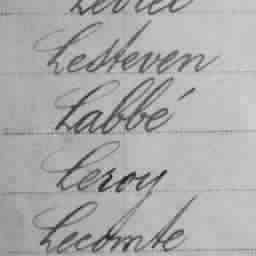 Lesteven
Labbé
Leroy
Lecomte